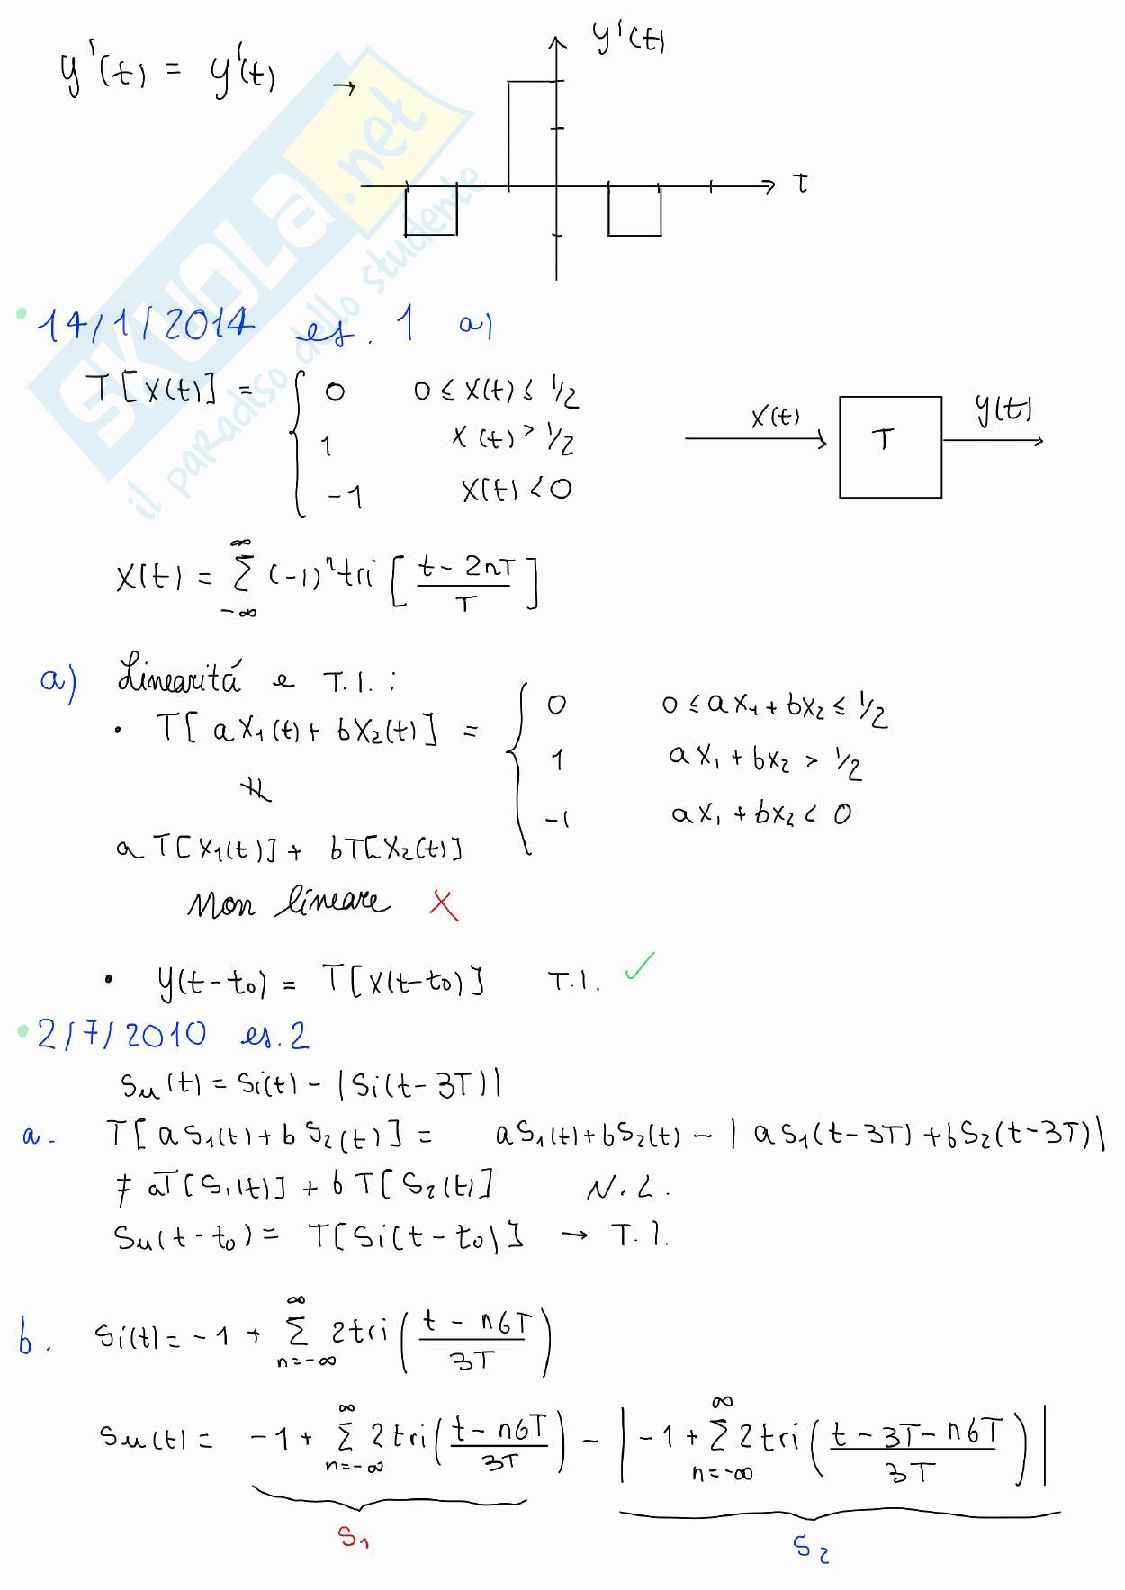 y'(t) = y'(t) →
y'(t)
T
SKUOLA.net
il paradiso dello studente
• 14/1/2014 es. 1 a)
T[x(t)] = { 0 0 ≤ x(t) ≤ 1/2
1 x(t) > 1/2
-1 x(t) < 0
x(t) T y(t)
x(t) = ∑_{-∞}^{∞} (-1)^n tri [ (t - 2nT)/T ]
a) Linearitá e T.I.:
• T[ax₁(t) + bx₂(t)] = { 0 0 ≤ ax₁ + bx₂ ≤ 1/2
1 ax₁ + bx₂ > 1/2
-1 ax₁ + bx₂ < 0
≠
aT[x₁(t)] + bT[x₂(t)]
Non lineare X
• y(t-t₀) = T[x(t-t₀)] T.I. ✓
• 2/7/2010 es.2
Su(t) = Si(t) - |Si(t-3T)|
a. T[aS₁(t) + bS₂(t)] = aS₁(t) + bS₂(t) - |aS₁(t-3T) + bS₂(t-3T)|
≠ aT[S₁(t)] + bT[S₂(t)] N.L.
Su(t-t₀) = T[Si(t-t₀)] → T.I.
b. Si(t) = -1 + ∑_{n=-∞}^{∞} 2tri( (t - n6T)/3T )
Su(t) = -1 + ∑_{n=-∞}^{∞} 2tri( (t - n6T)/3T ) - | -1 + ∑_{n=-∞}^{∞} 2tri( (t - 3T - n6T)/3T ) |
S₁ S₂